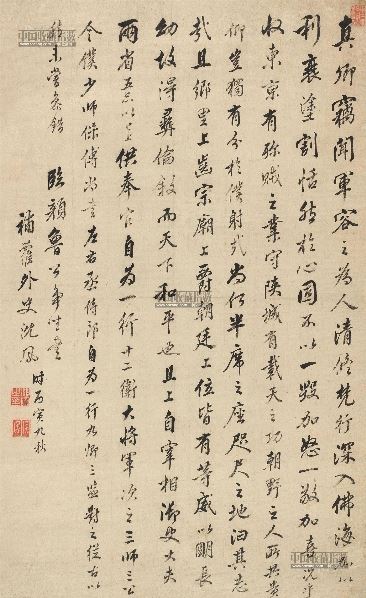 真卿竊聞軍容之為人清修梵行深入佛海加以
利衰塗割恬然於心固不以一毀加怒一敬加喜況乎
收東京有殄賊之業守陝城有戴天之功朝野之人所共貴
仰豈獨有分於僕射哉尚何半席之座咫尺之地汩其志
哉且鄉里上齒宗廟上爵朝廷上位皆有等威以明長
幼故得彝倫敘而天下和平也且上自宰相御史大夫
兩省五品以上供奉官自為一行十二衛大將軍次之三師三公
令僕少師保傅尚書左右丞侍郎自為一行九卿三監對之從古以
然未嘗參錯
臨顏魯公爭坐書
補蘿外史沈鳳
時丙寅九秋